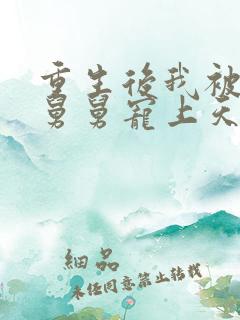 重生後我被
舅舅寵上天
細品
未經同意禁止轉載